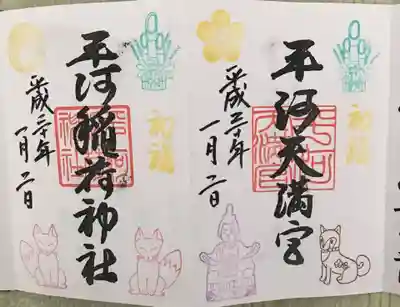 平河天満宮
平成三十年
一月二日
初詣
平河稲荷神社
平成三十年
一月二日
初詣